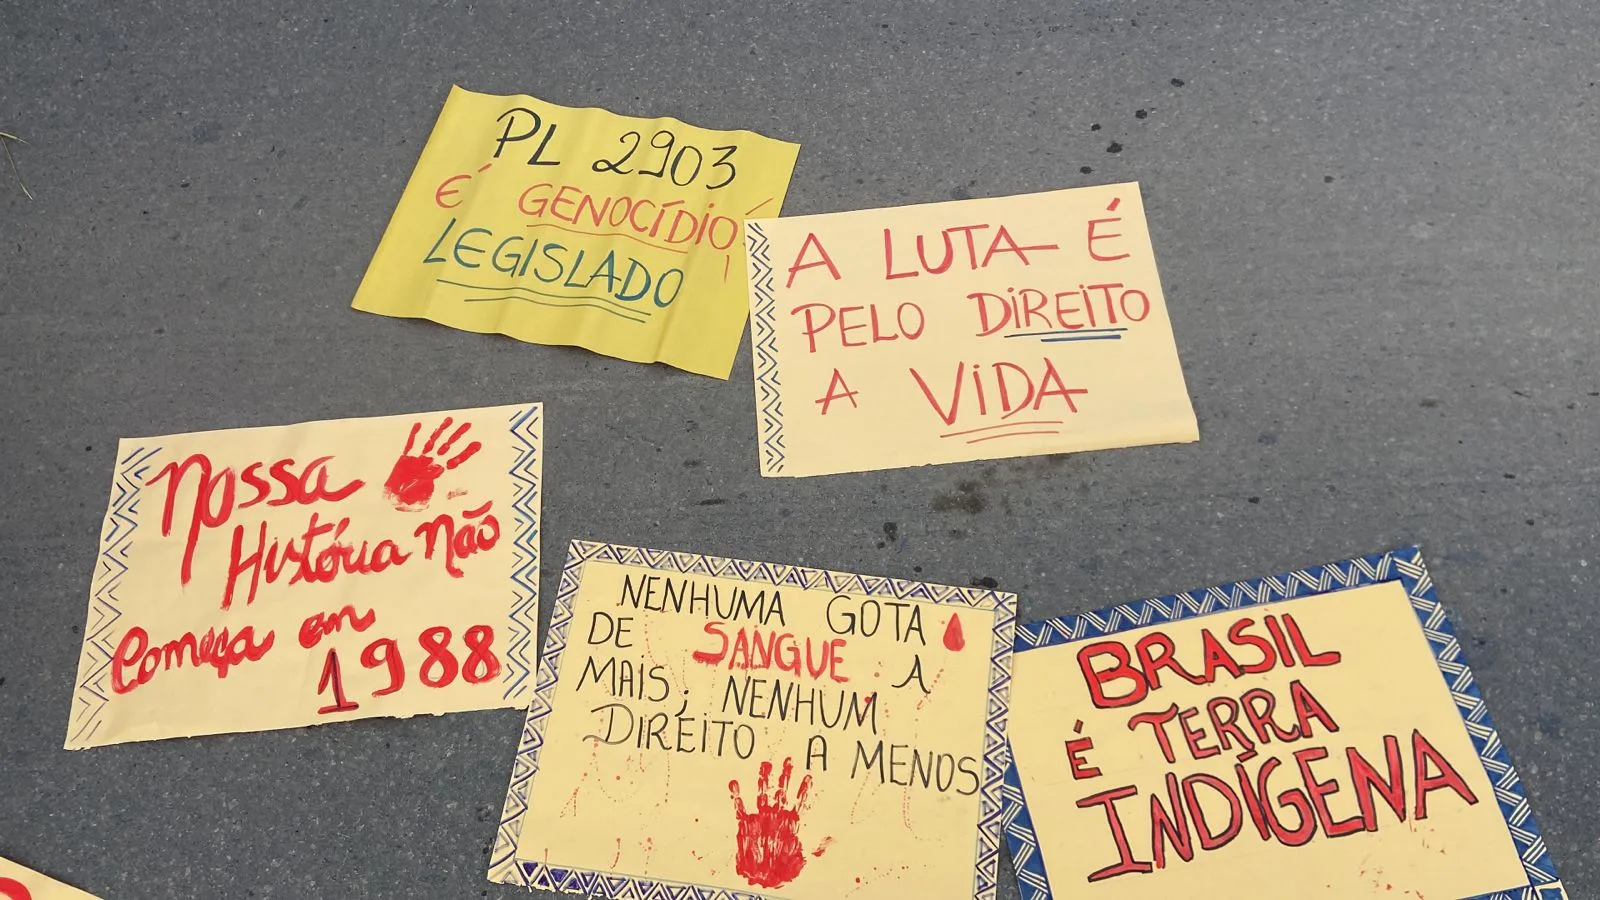 PL 2903
É GENOCÍDIO
LEGISLADO
A LUTA É
PELO DIREITO
A VIDA
Nossa
História não
Começa em
1988
NENHUMA GOTA
DE SANGUE A
MAIS; NENHUM
DIREITO A MENOS
BRASIL
É TERRA
INDÍGENA